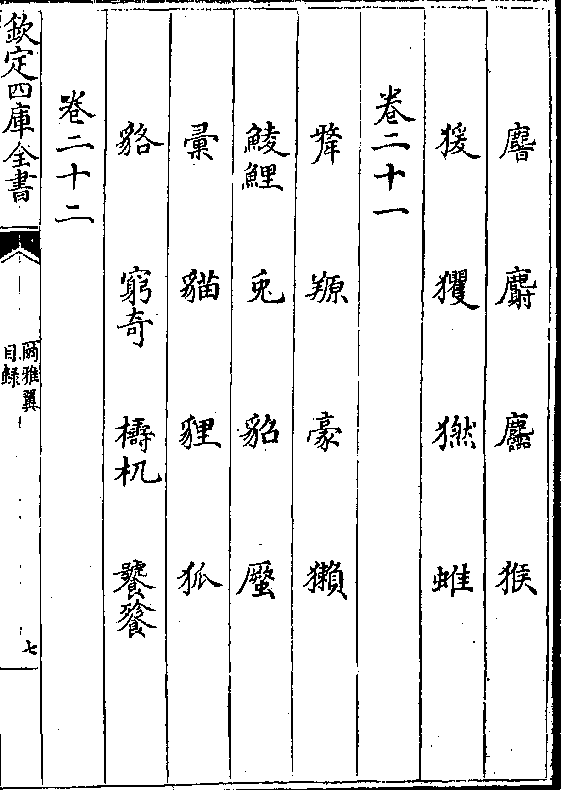 麝 猴
猨 玃 𤡮 蜼
卷二十一
羱 豪 獺
鯪鯉 兎 貂 蟨
彙 貓 貍 狐
貉 窮奇 檮杌 饕餮
卷二十二
欽定四庫全書
爾雅翼
目録
七